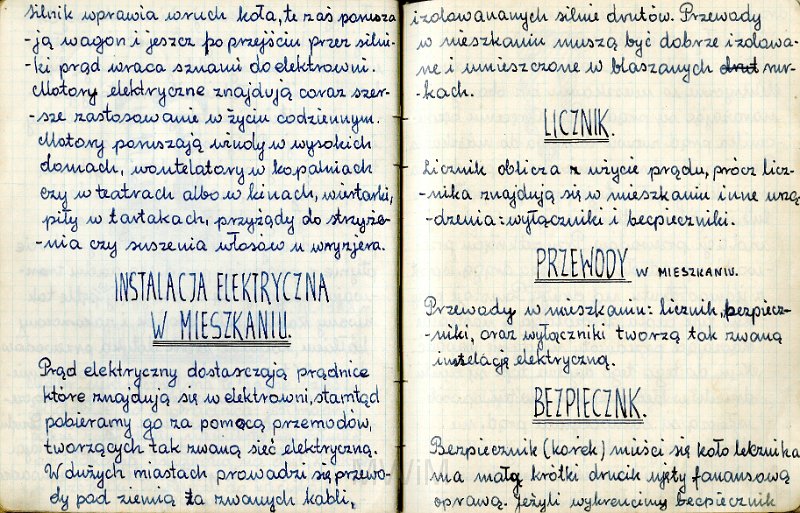 silnik wprawia wruch koła, te zaś porusza
-ją wagon i jeszcz po przejściu przez silni-
-ki prąd wraca sznami do elektrowni.
Motory elektryczne znajdują coraz szer-
-sze zastosowanie w życiu codziennym.
Motory poruszają windy w wysokich
domach, wontelatory w kopalniach
czy w teatrach albo w kinach, wiertarki,
piły w tartakach, przyżądy do strzyże-
-nia czy suszenia włosów u wryzjera.
INSTALACJA ELEKTRYCZNA
W MIESZKANIU.
Prąd elektryczny dostarczają prądnice
które znajdują się w elektrowni, stamtąd
pobieramy go za pomocą przewodów,
tworzących tak zwaną sieć elektryczną.
W dużych miastach prowadzi się przewo-
dy pod ziemią ta zwanych kabli,
izolowananych silnie drutów. Przewody
w mieszkaniu muszą być dobrze izolowa-
ne i umieszczone w blaszanych drut rur-
-kach.
LICZNIK.
Licznik oblicza z użycie prądu, prócz licz-
-nika znajdują się w mieszkaniu inne urzą
-dzenia: wyłączniki i bezpieczniki.
PRZEWODY W MIESZKANIU.
Przewody w mieszkaniu: licznik, bezpiecz-
-niki, oraz wyłączniki tworzą tak zwaną
instelację elektryczną.
BEZPIECZNK.
Bezpiecznik (korek) mieści się koło lekznika
ma małą krótki drucik ujęty fanansową
oprawą. Jeżyli wykrencimy bezpiecznik